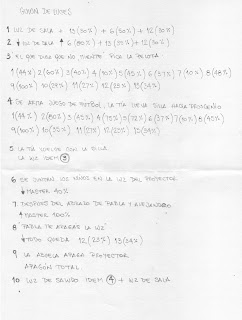 GUION DE LUCES
1 LUZ DE SALA + 13 (50%) + 6 (50%) + 12 (50%)
2 ↓ LUZ DE SALA ↑ 6 (80%) + 13 (55%) + 12 (50%)
3 EL QUE DIGA QUE NO MIENTE PICA LA PELOTA
1 (44%) 2 (60%) 3 (40%) 4 (50%) 5 (45%) 6 (37%) 7 (50%) 8 (48%)
9 (100%) 10 (29%) 11 (27%) 12 (25%) 13 (34%)
4 SE ARMA JUEGO DE FUTBOL, LA TIA LLEVA SILLA HACIA PROSCENIO
1 (44%) 2 (80%) 3 (45%) 4 (75%) 5 (72%) 6 (37%) 7 (50%) 8 (45%)
9 (100%) 10 (35%) 11 (27%) 12 (25%) 13 (34%)
5 LA TIA VUELVE CON LA SILLA
LA LUZ IDEM 3
6 SE JUNTAN LOS NIÑOS EN LA LUZ DEL PROYECTOR
↓ MASTER 40%
7 DESPUES DEL ABRAZO DE PABLA Y ALEJANDRO
↑ MASTER 100%
8 PABLA PIDE APAGAR LA LUZ
↓ TODO QUEDA 12 (25%) 13 (34%)
9 LA ABUELA APAGA PROYECTOR
APAGON TOTAL
10 LUZ DE SALUDO IDEM 4 + LUZ DE SALA